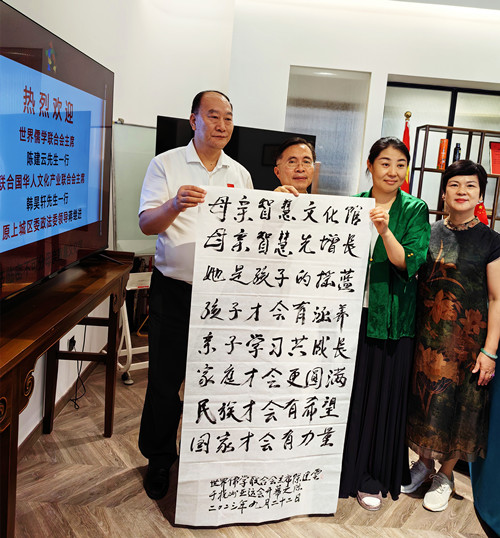 热烈欢迎
世界儒学联合会主席
陈建云先生一行
联合国华人文化产业联合会主席
韩昊轩先生一行
原上城区委政法委领导
母亲智慧文化馆
母亲智慧先增长
她是孩子的摇蓝
孩子才会有涵养
亲子学习共成长
家庭才会更圆满
民族才会有希望
国家才会有力量
世界儒学联合会主席陈建雲
于杭州亚运会开幕之际
二〇二三年九月二十二日